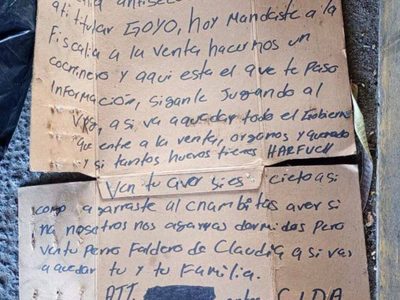 antisec
ati titular GOYO, hoy Mandaste a la
Fiscalia a la venta hacernos un
cocninero y aqui esta el que te Paso
informacion, siganle Jugando al
a si va aquedar todo el Gobierno
que entre a la venta, orgamos y quemado
y si tantos huevos tienes HARFUCH
Ven tu aver si es cieto asi
como agarraste al cnambitas aver si
na nosotros nos agarras dormidos Pero
ven tu Perro Faldero de Claudia a si vas
a quedar tu y tu Familia.
ATT.